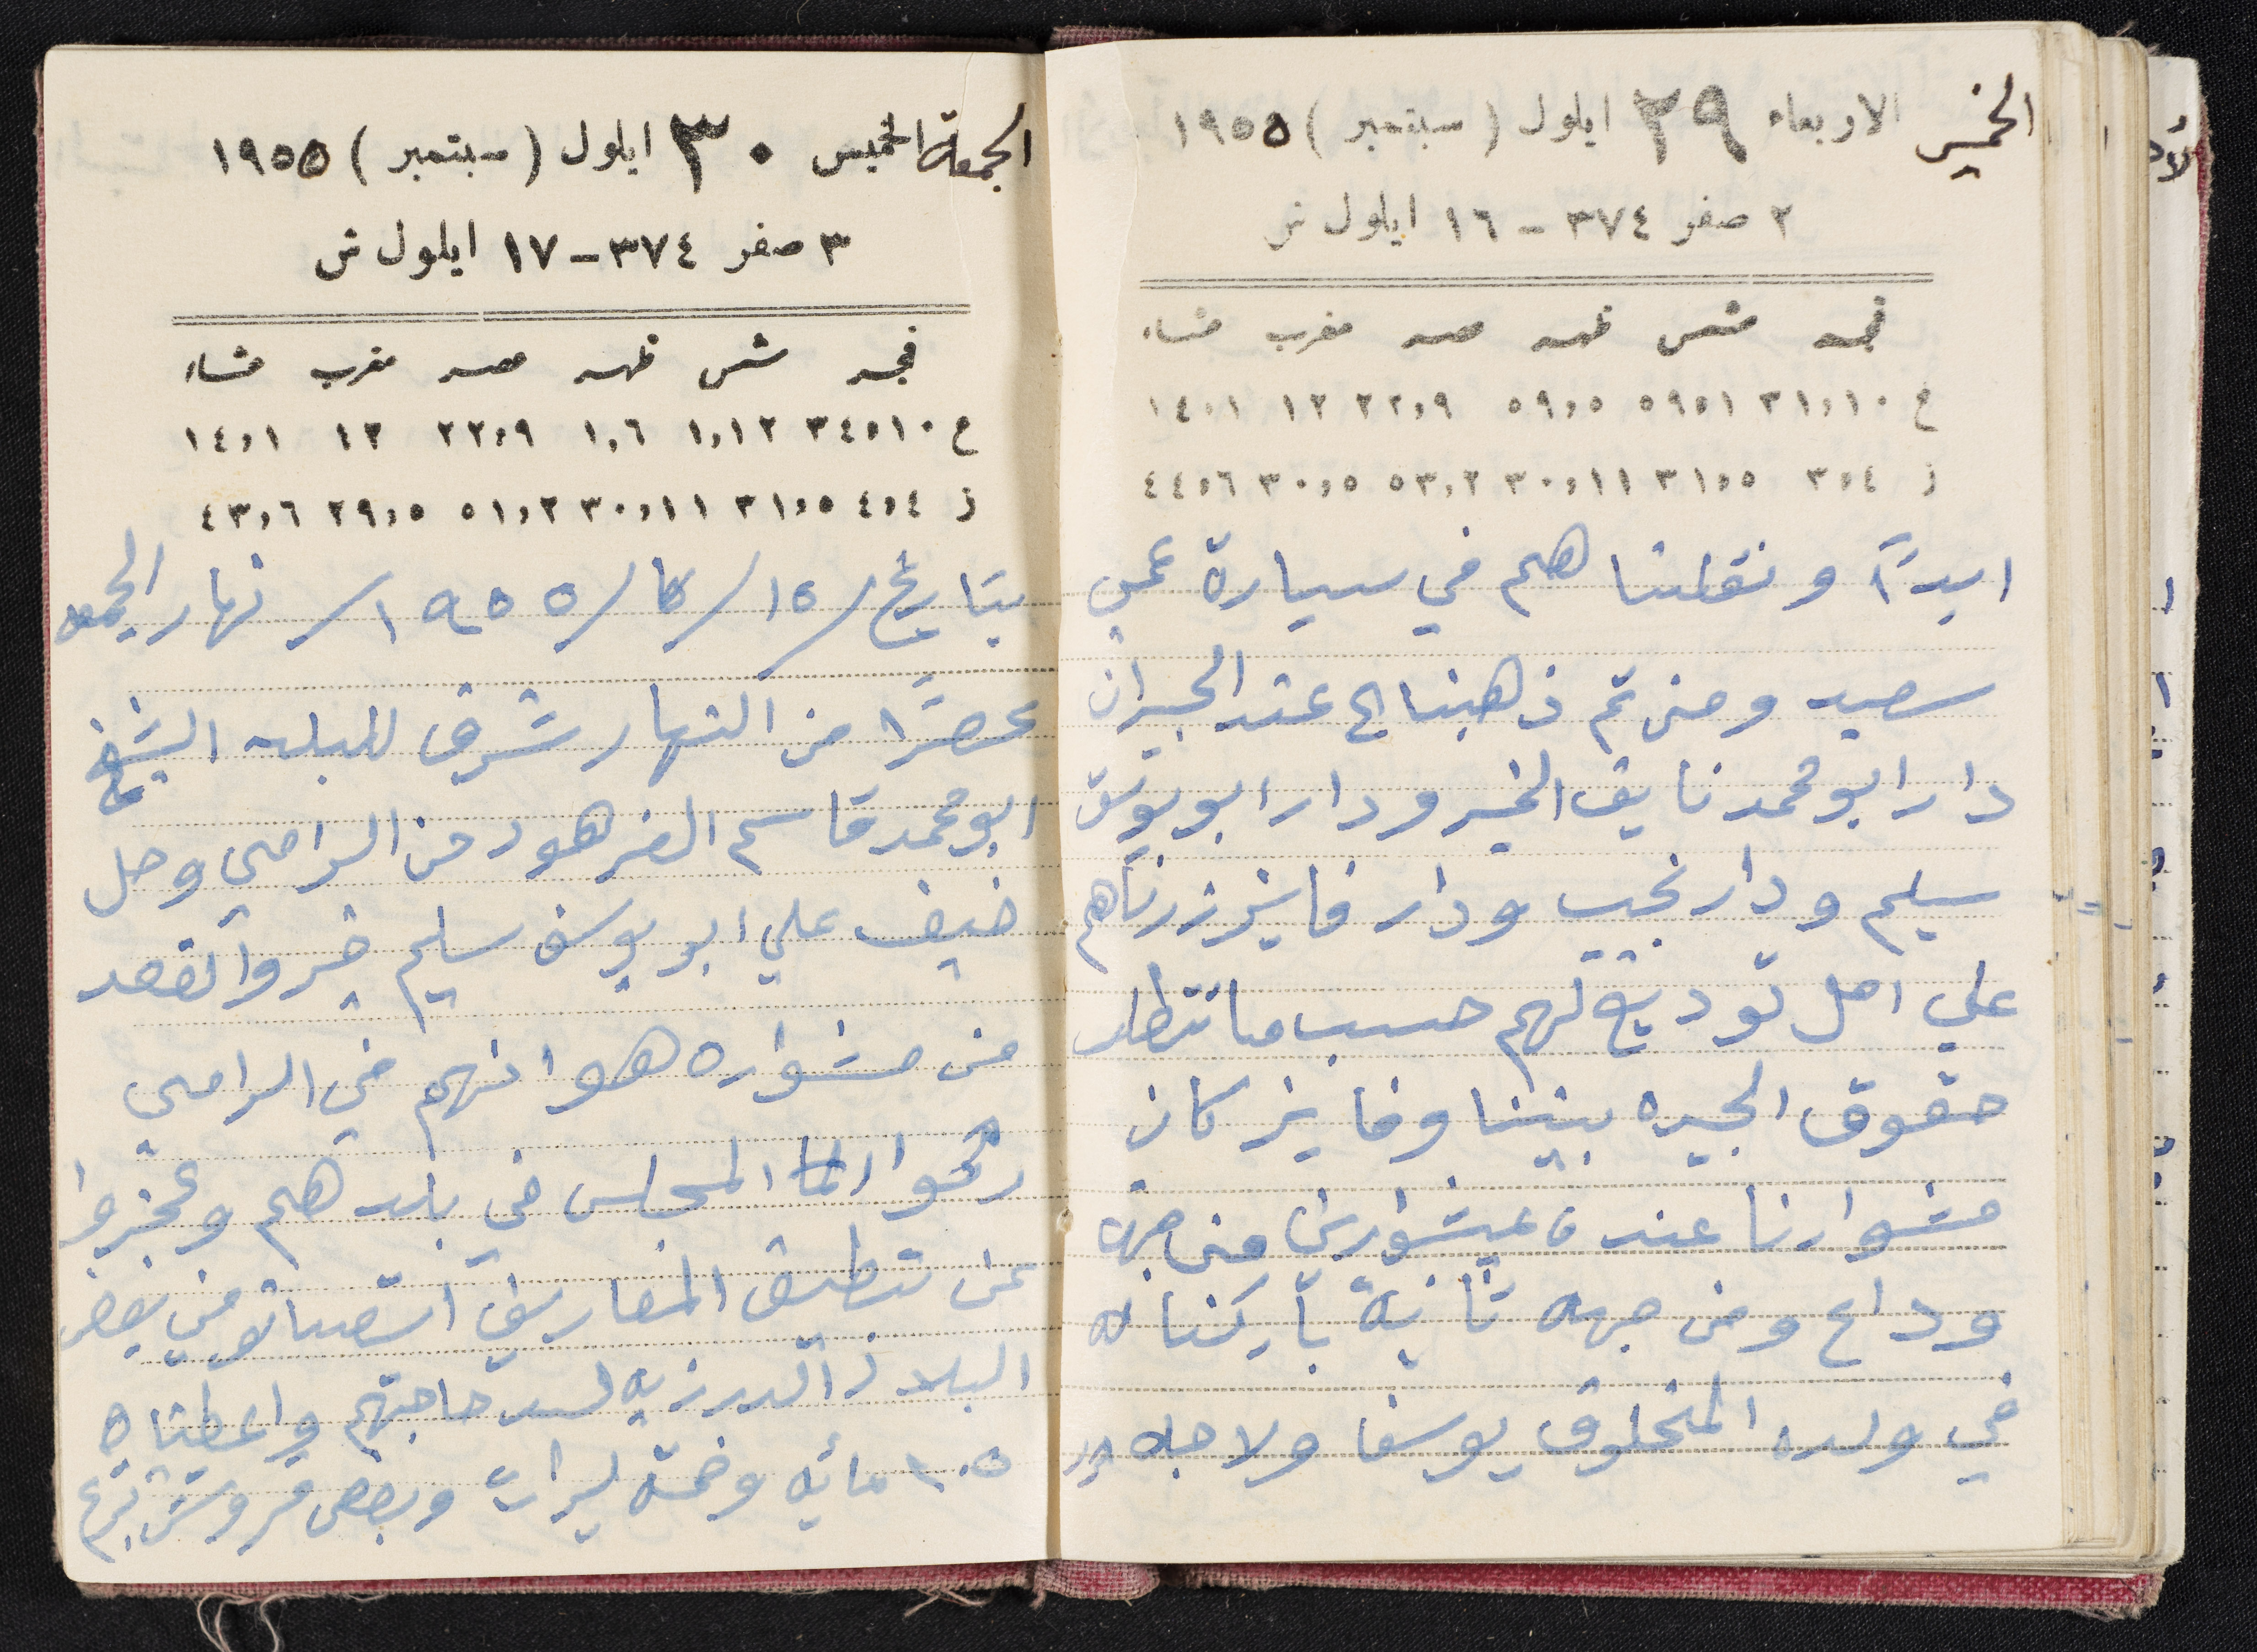 الخميس الاربعاء ٢٩ ايلول (سبتمبر) ١٩٥٥
٢ صفر ٣٧٤ - ١٦ ايلول ش
فجر شمس ظهر عصر مغرب عشاء
ع ٣١،١٠ ٥٩،١ ٥٩،٥ ٢٢،٩ ١٢ ١٤،١
ز ٣،٤ ٣١،٥ ٣٠،١١ ٥٣،٢ ٣٠،٥ ٤٤،٦
ابدًا ونقلناهم في سيارة عمي
سعيد ومن ثم ذهبنا الى عند الجيران
دار ابو محمد نايف الخير ودار ابو يوسف
سليم ودار نجيب ودار فايز زرناهم
علي امل توديع لهم حسب ما تتطلب
حقوق الجيره بيننا وفايز كان
مشوارنا عنده مشوارين من جهة
وداع ومن جهه ثانية باركنا له
في ولده المخلوق يوسف ولاجله
الجمعة الخميس ٣٠ ايلول (سبتمبر) ١٩٥٥
٣ صفر ٣٧٤ - ١٧ ايلول ش
فجر شمس ظهر عصر مغرب عشاء
ع ٣٤،١٠ ١،١٢ ١،٦ ٢٢،٩ ١٢ ١٤،١
ز ٤،٤ ٣١،٥ ٣٠،١١ ٥١،٢ ٢٩،٥ ٤٣،٦
بتاريخ ١٥/ /١٩٥٥/ نهار الجمعه
عصرًا من النهار شرف للبلد الشيخ
ابو محمد قاسم الفرهود من الرامي وحل
ضيف علي ابو يوسف سليم خير والقصد
من مشواره هو انهم في الرامي
المجلس في بلدهم وعجزوا
عن المصاريف من بعض
البلاد الدرزيه لسد حاجتهم واعطيناه
١٠٥ مائه وخمسة ليرات وبعض قروش تبرع